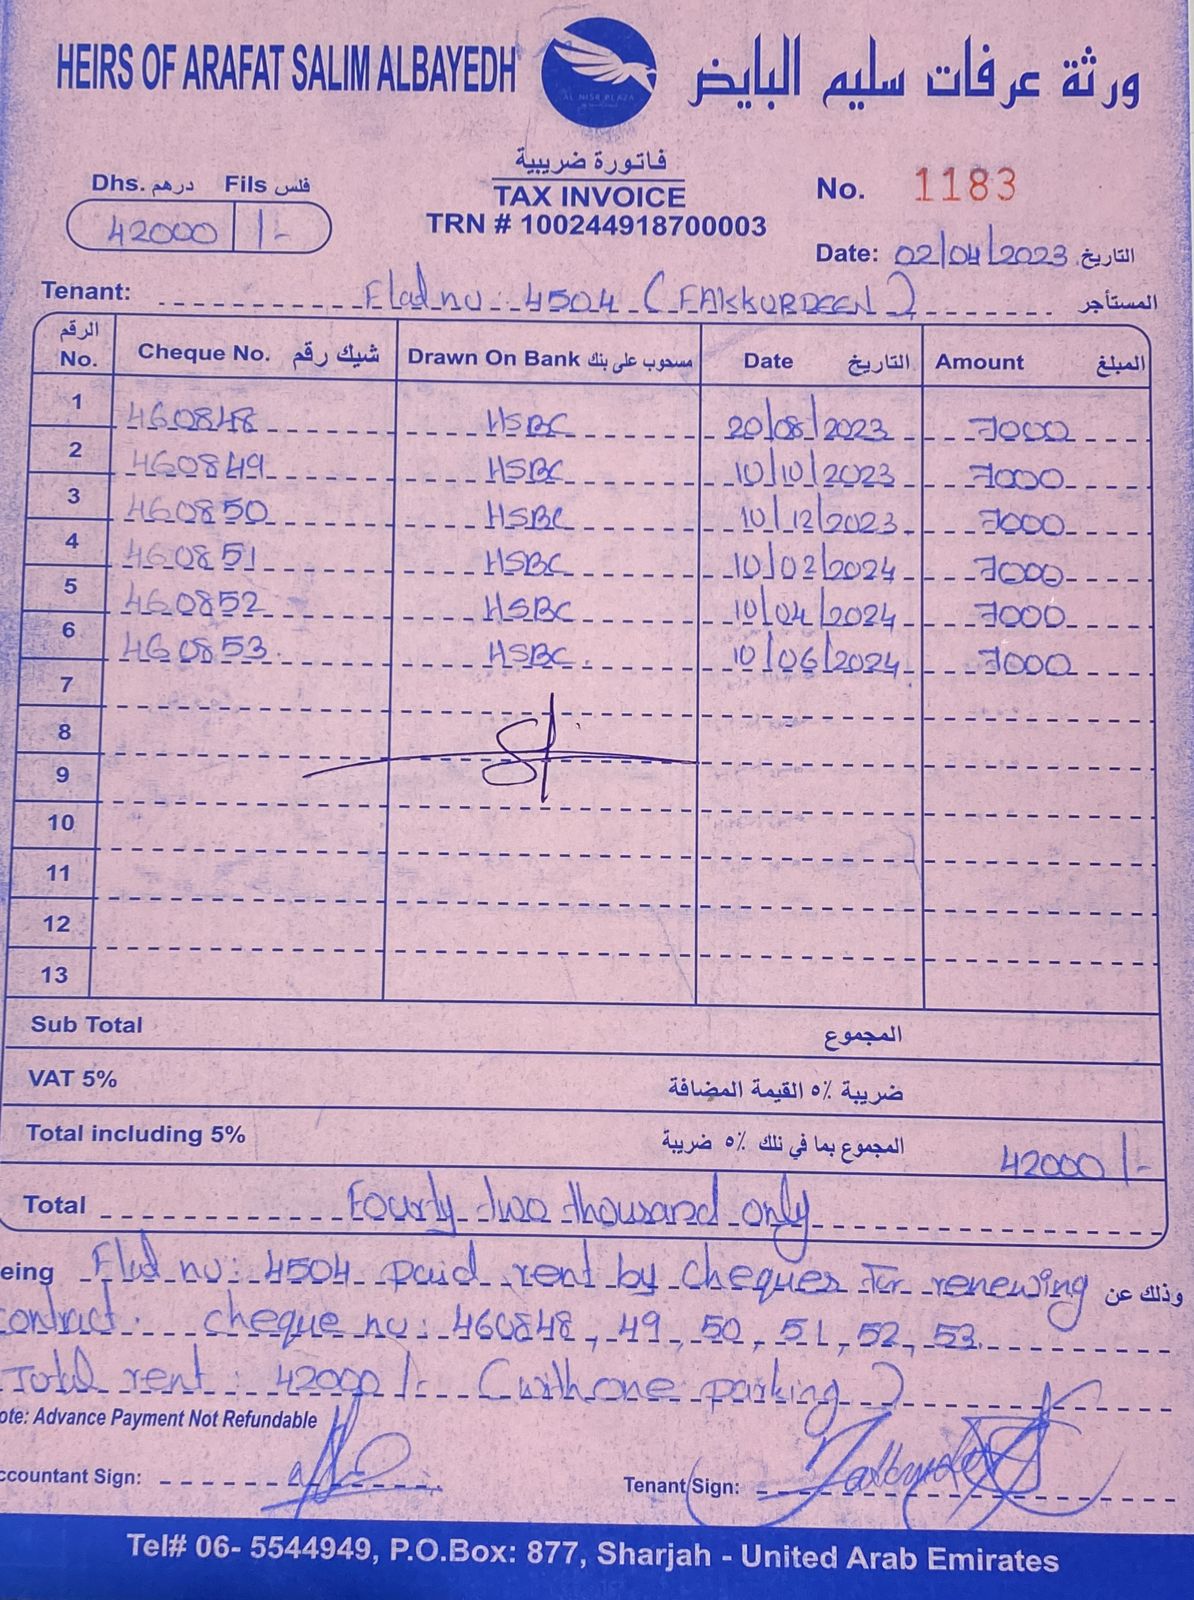 HEIRS OF ARAFAT SALIM ALBAYEDH
ورثة عرفات سليم البايض
AL NISR PLAZA
فاتورة ضريبية
TAX INVOICE
TRN # 100244918700003
Dhs. درهم Fils فلس
42000 /-
No. 1183
Date: 02/04/2023 التاريخ
Tenant: Flad nu: 4504 (FAKKURDEEN) المستأجر
الرقم No. Cheque No. شيك رقم Drawn On Bank مسحوب على بنك Date التاريخ Amount المبلغ
1 460848 HSBC 20/08/2023 7000
2 460849 HSBC 10/10/2023 7000
3 460850 HSBC 10/12/2023 7000
4 460851 HSBC 10/02/2024 7000
5 460852 HSBC 10/04/2024 7000
6 460853 HSBC 10/06/2024 7000
7
8
9
10
11
12
13
Sub Total المجموع
VAT 5% ضريبة ٥٪ القيمة المضافة
Total including 5% المجموع بما في ذلك ٥٪ ضريبة 42000/-
Total Fourty two thousand only
eing Flad nu: 4504 paid rent by cheques For renewing وذلك عن
contract. cheque nu: 460848, 49, 50, 51, 52, 53.
Total rent: 42000/- (with one parking)
ote: Advance Payment Not Refundable
ccountant Sign: Tenant Sign:
Tel# 06- 5544949, P.O.Box: 877, Sharjah - United Arab Emirates